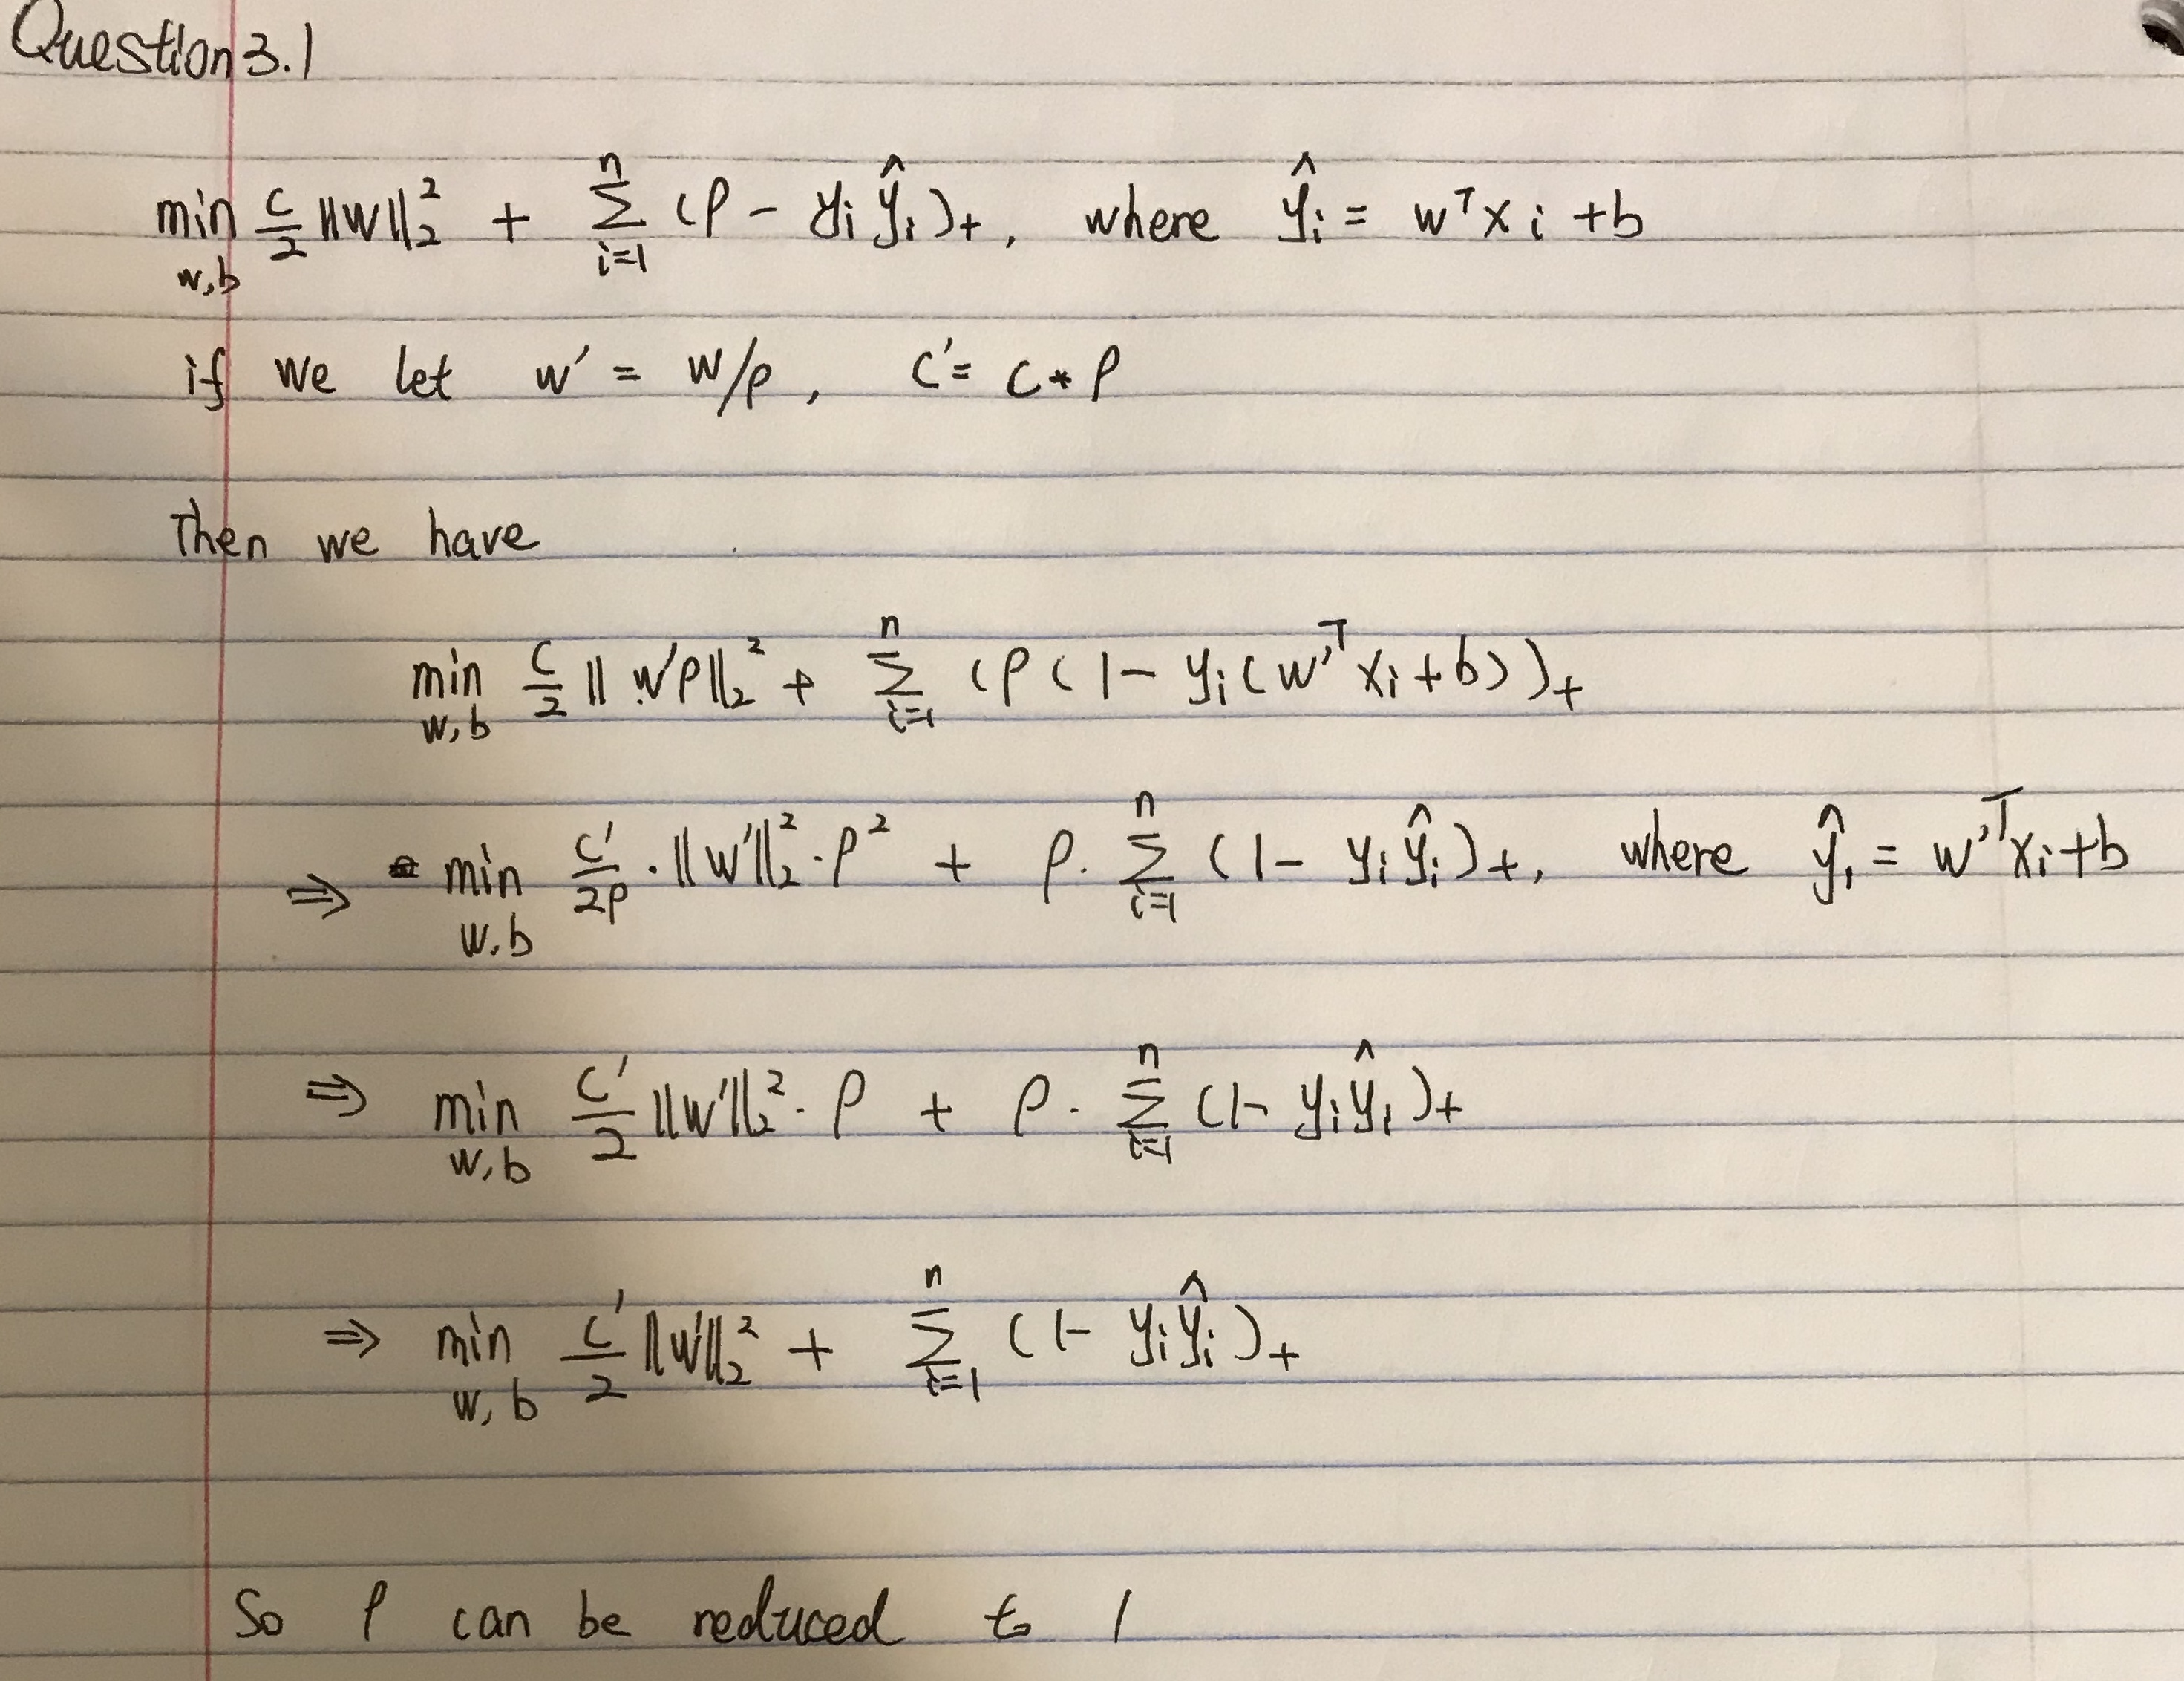 Question 3.1
min_{w,b} C/2 ||w||₂² + Σ_{i=1}^{n} (ρ - yᵢŷᵢ)₊, where ŷᵢ = wᵀxᵢ + b
if we let w' = w/ρ, C' = C * ρ
Then we have
min_{w,b} C/2 ||w'ρ||₂² + Σ_{i=1}^{n} (ρ(1 - yᵢ(w'ᵀxᵢ + b)))₊
⇒ min_{w,b} C'/2ρ · ||w'||₂² · ρ² + ρ · Σ_{i=1}^{n} (1 - yᵢŷᵢ)₊, where ŷᵢ = w'ᵀxᵢ + b
⇒ min_{w,b} C'/2 ||w'||₂² · ρ + ρ · Σ_{i=1}^{n} (1 - yᵢŷᵢ)₊
⇒ min_{w,b} C'/2 ||w'||₂² + Σ_{i=1}^{n} (1 - yᵢŷᵢ)₊
So ρ can be reduced to 1